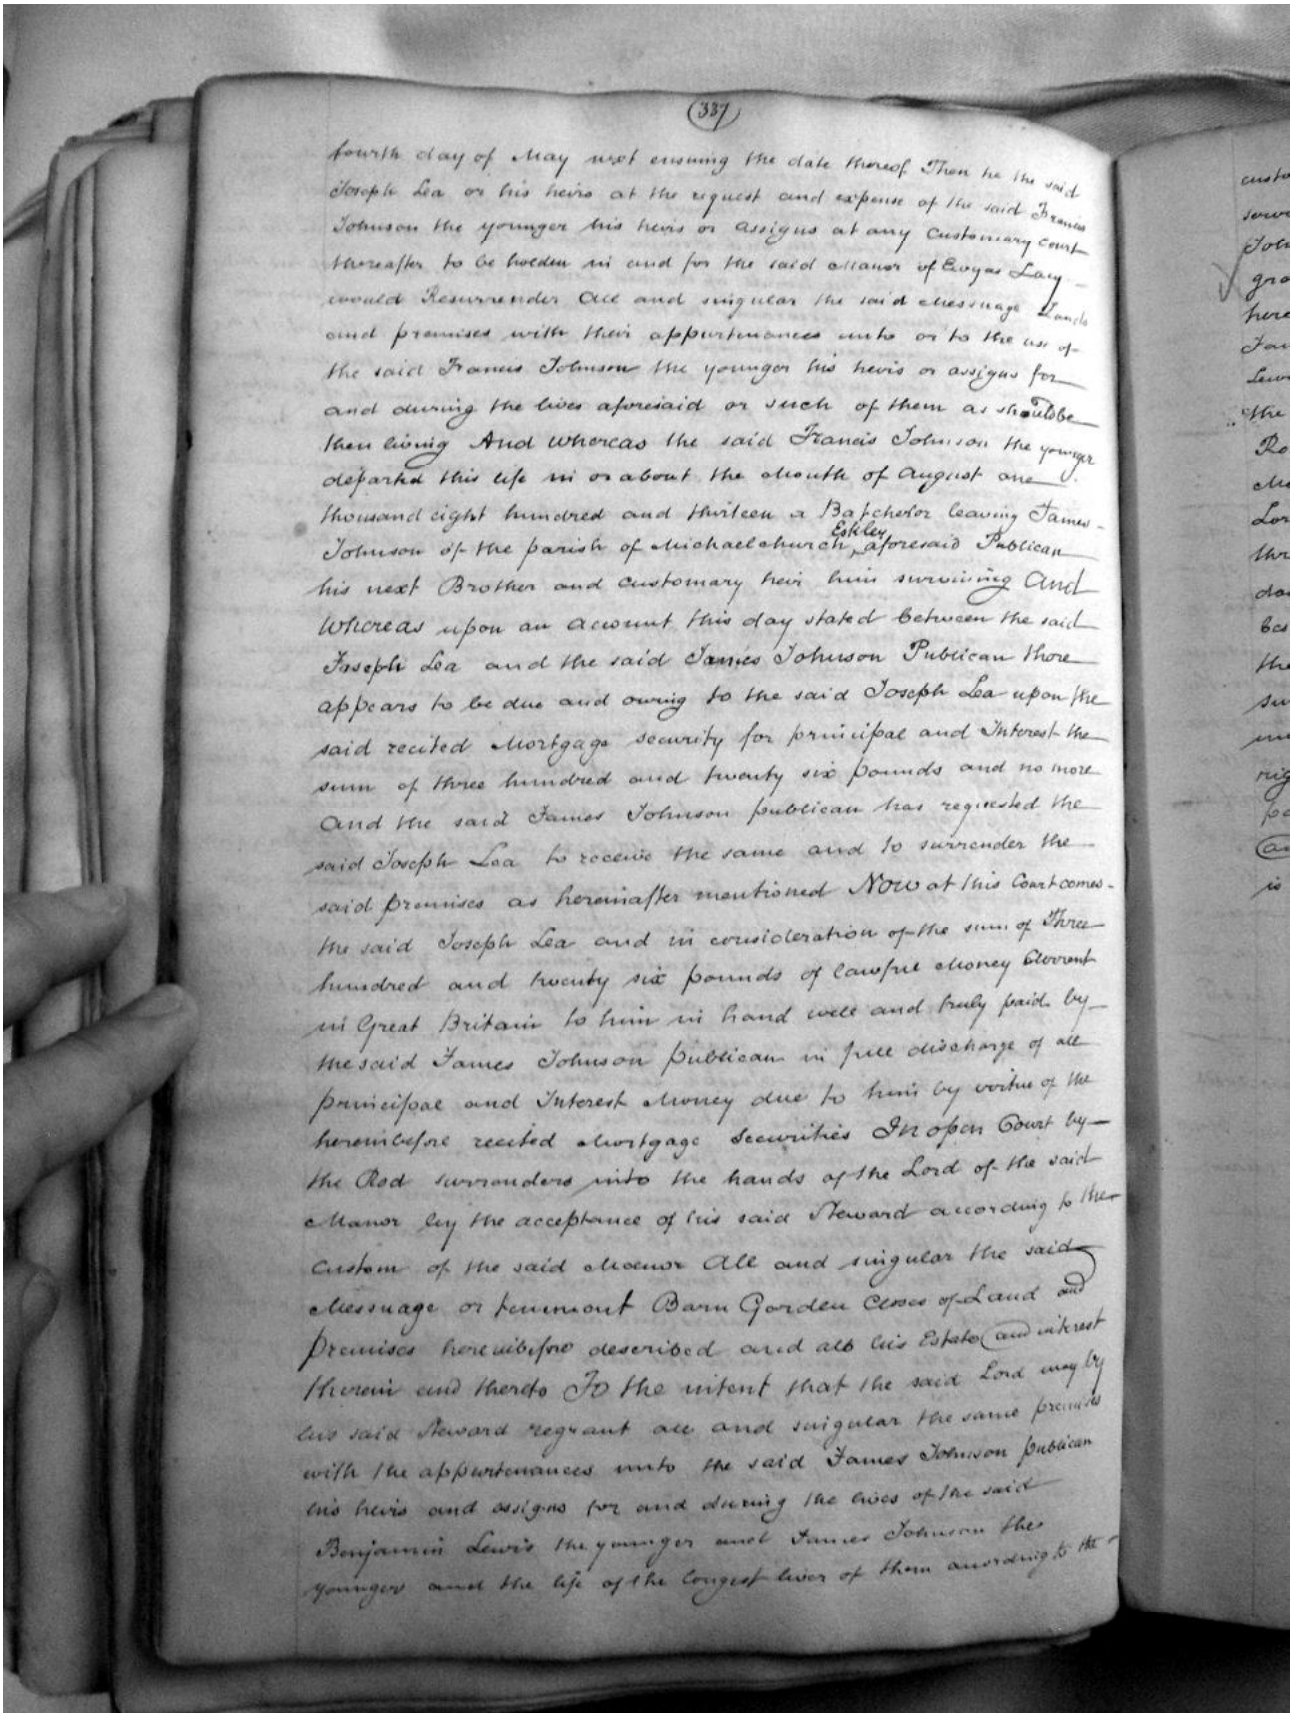 (337)
fourth day of May next ensuing the date thereof Then he the said
Joseph Lea or his heirs at the request and expense of the said Francis
Johnson the younger his heirs or assigns at any Customary Court
thereafter to be holden in and for the said Manor of Ewyas Lacy
would Resurrender All and singular the said Messuage Lands
and premises with their appurtenances unto or to the use of
the said Francis Johnson the younger his heirs or assigns for
and during the lives aforesaid or such of them as should be
then living And Whereas the said Francis Johnson the younger
departed this life in or about the Month of August one
thousand eight hundred and thirteen a Batchelor leaving James
Johnson of the parish of Michaelchurch Eskley aforesaid Publican
his next Brother and customary heir him surviving And
Whereas upon an account this day stated between the said
Joseph Lea and the said James Johnson Publican there
appears to be due and owing to the said Joseph Lea upon the
said recited Mortgage security for principal and Interest the
sum of three hundred and twenty six pounds and no more
And the said James Johnson publican has requested the
said Joseph Lea to receive the same and to surrender the
said premises as hereinafter mentioned Now at this Court comes
the said Joseph Lea and in consideration of the sum of Three
hundred and twenty six pounds of lawful Money Current
in Great Britain to him in hand well and truly paid by
the said James Johnson publican in full discharge of all
principal and Interest Money due to him by virtue of the
hereinbefore recited Mortgage Securities In open Court by
the Rod surrenders into the hands of the Lord of the said
Manor by the acceptance of his said Steward according to the
Custom of the said Manor All and singular the said
Messuage or tenement Barn Garden Closes of Land and
Premises hereinbefore described and all his Estate and interest
therein and thereto To the intent that the said Lord may by
his said Steward regrant all and singular the same premises
with the appurtenances unto the said James Johnson publican
his heirs and assigns for and during the lives of the said
Benjamin Lewis the younger and James Johnson the
younger and the life of the longest liver of them according to the